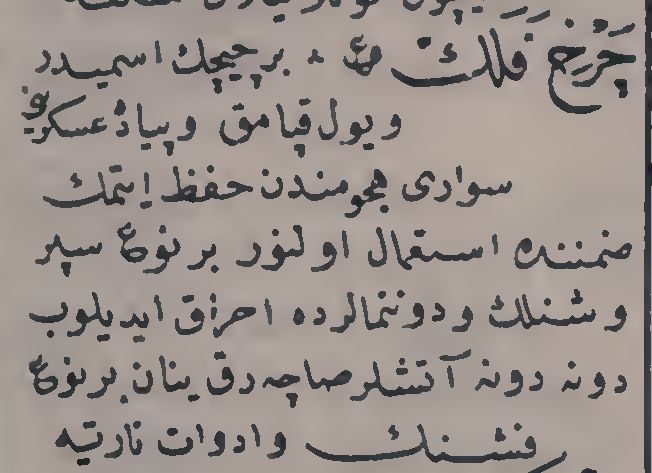 چَرْخِ فَلَكْ ع . بر چيچك اسميدر
و يول قپامق و پياده عسكرينى
سوارى هجومندن حفظ ايتمك
ضمننده استعمال اولنور بر نوع سپر
و شنلك و دوننمالرده احراق ايديلوب
دونه دونه آتشلر صاچه‌رق ينان بر نوع
فشنك و ادوات ناريه